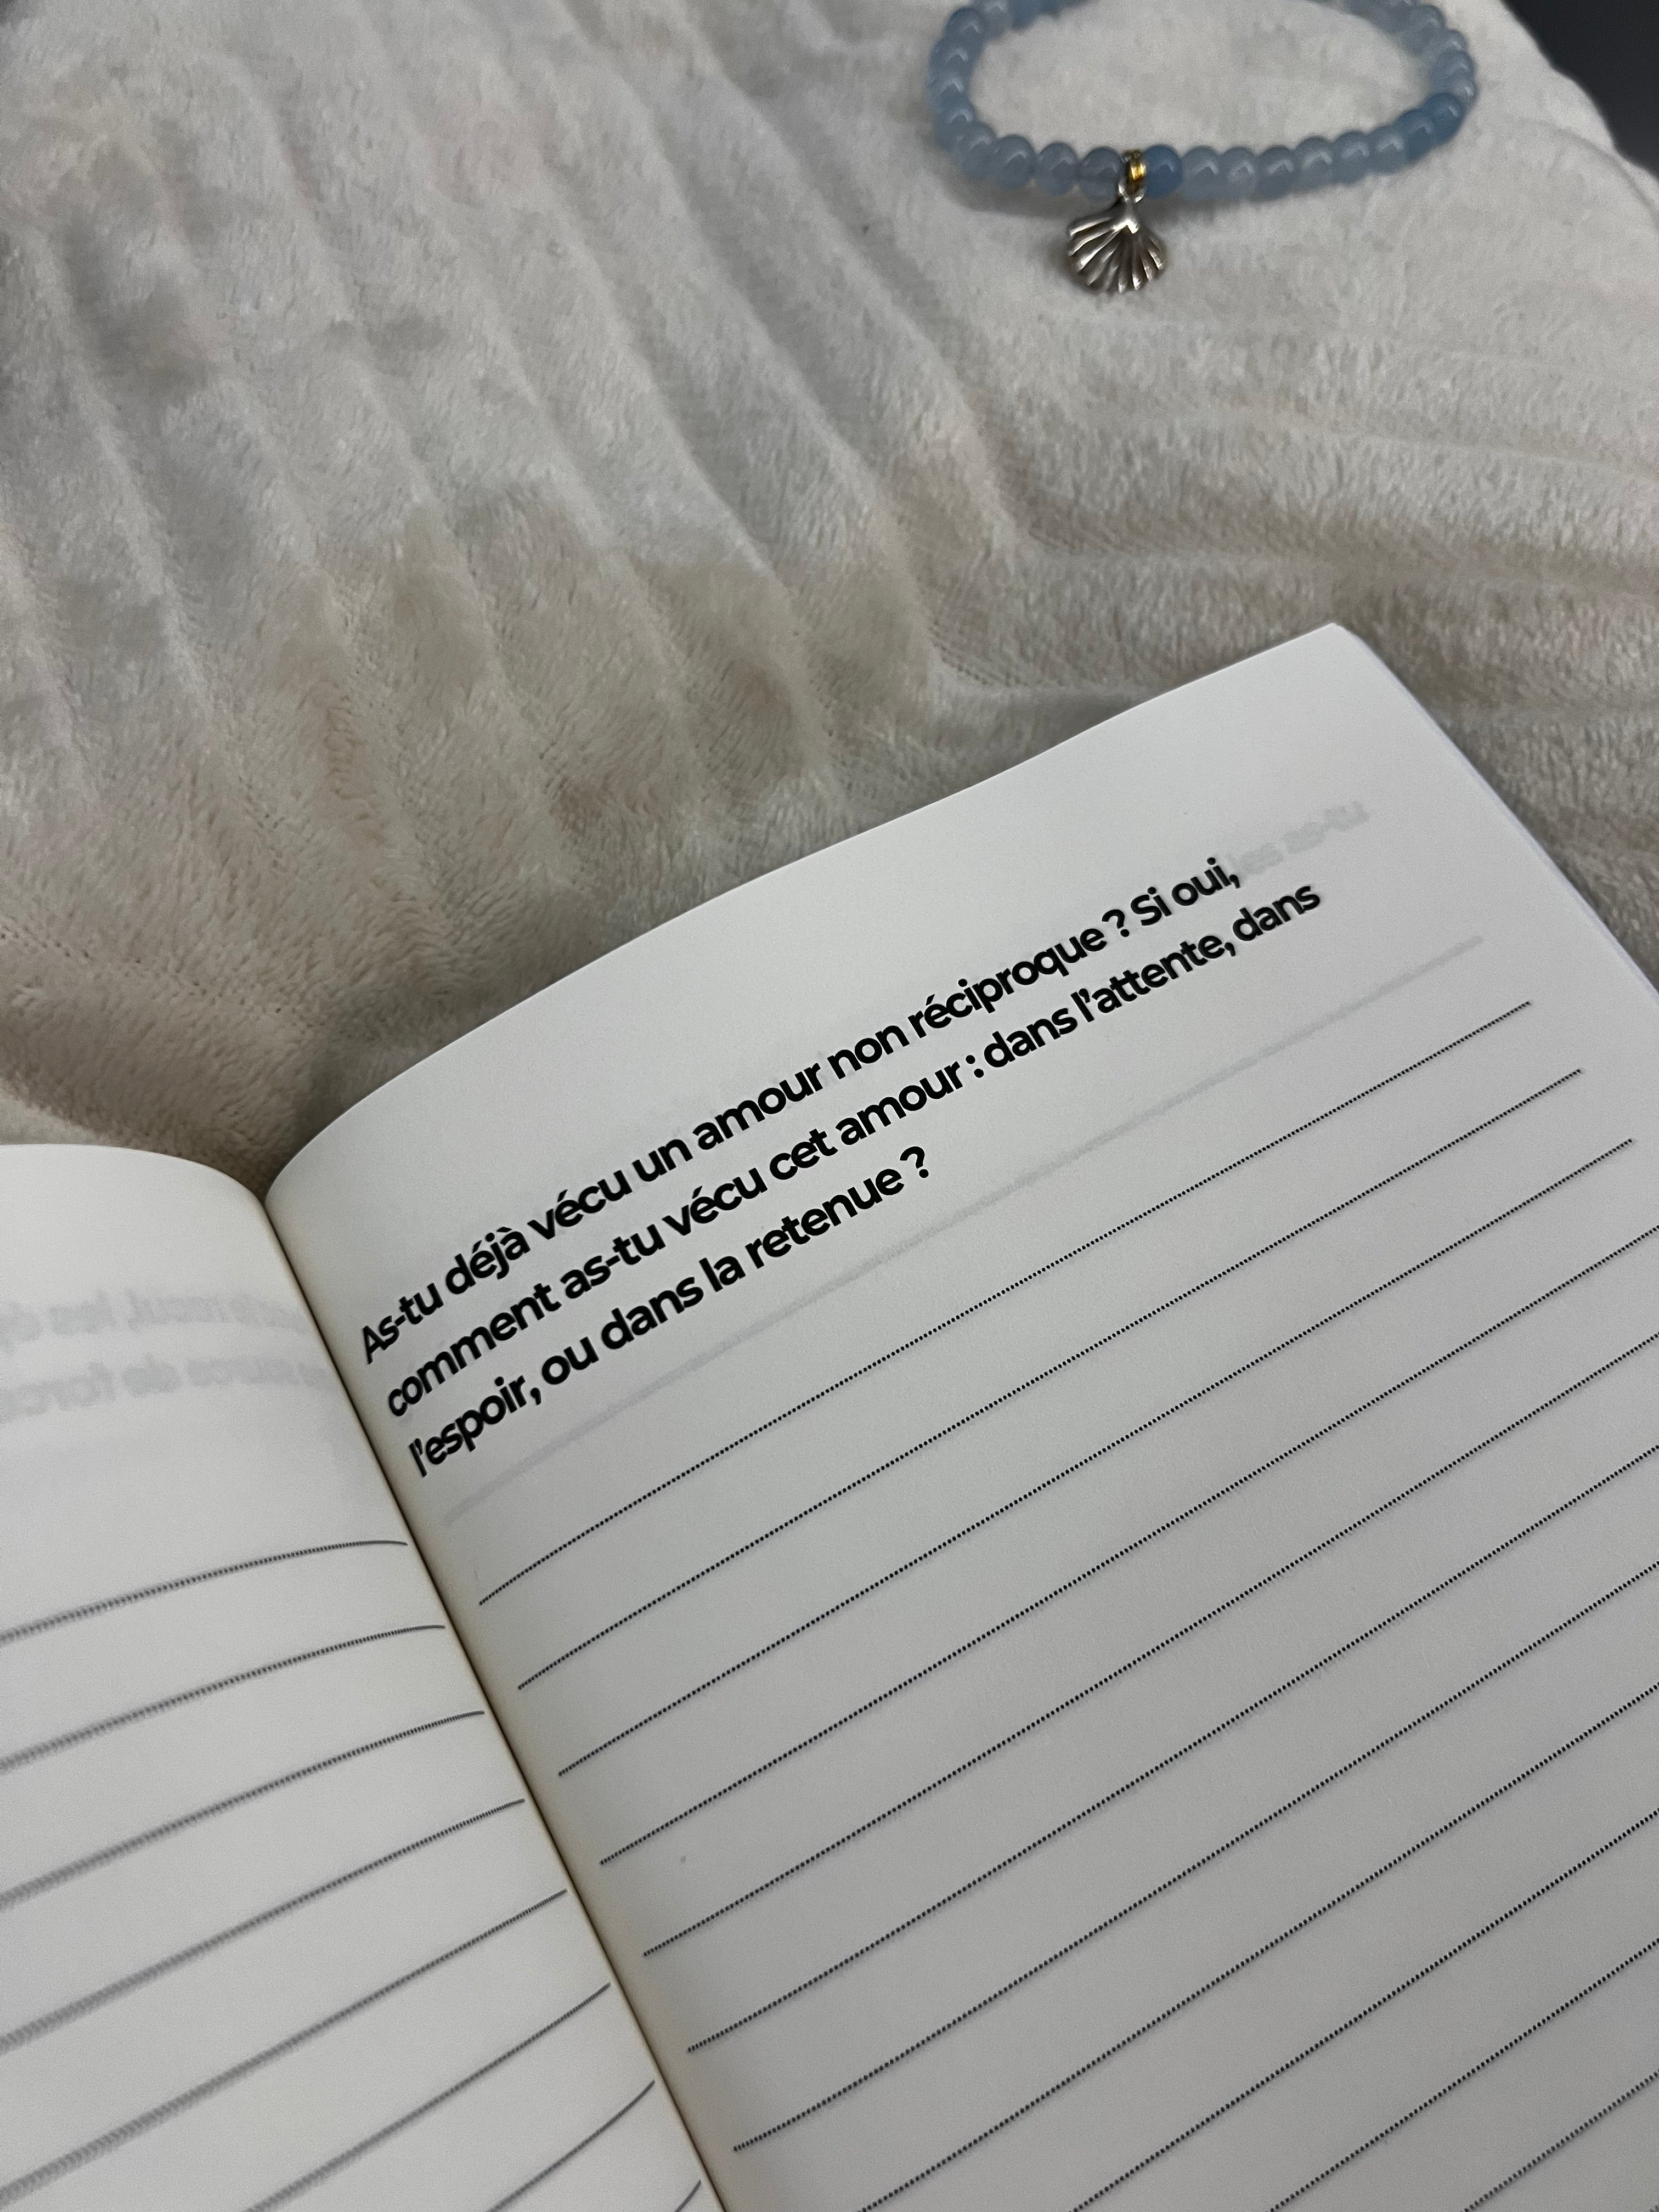 As-tu déjà vécu un amour non réciproque ? Si oui,
comment as-tu vécu cet amour : dans l'attente, dans
l'espoir, ou dans la retenue ?